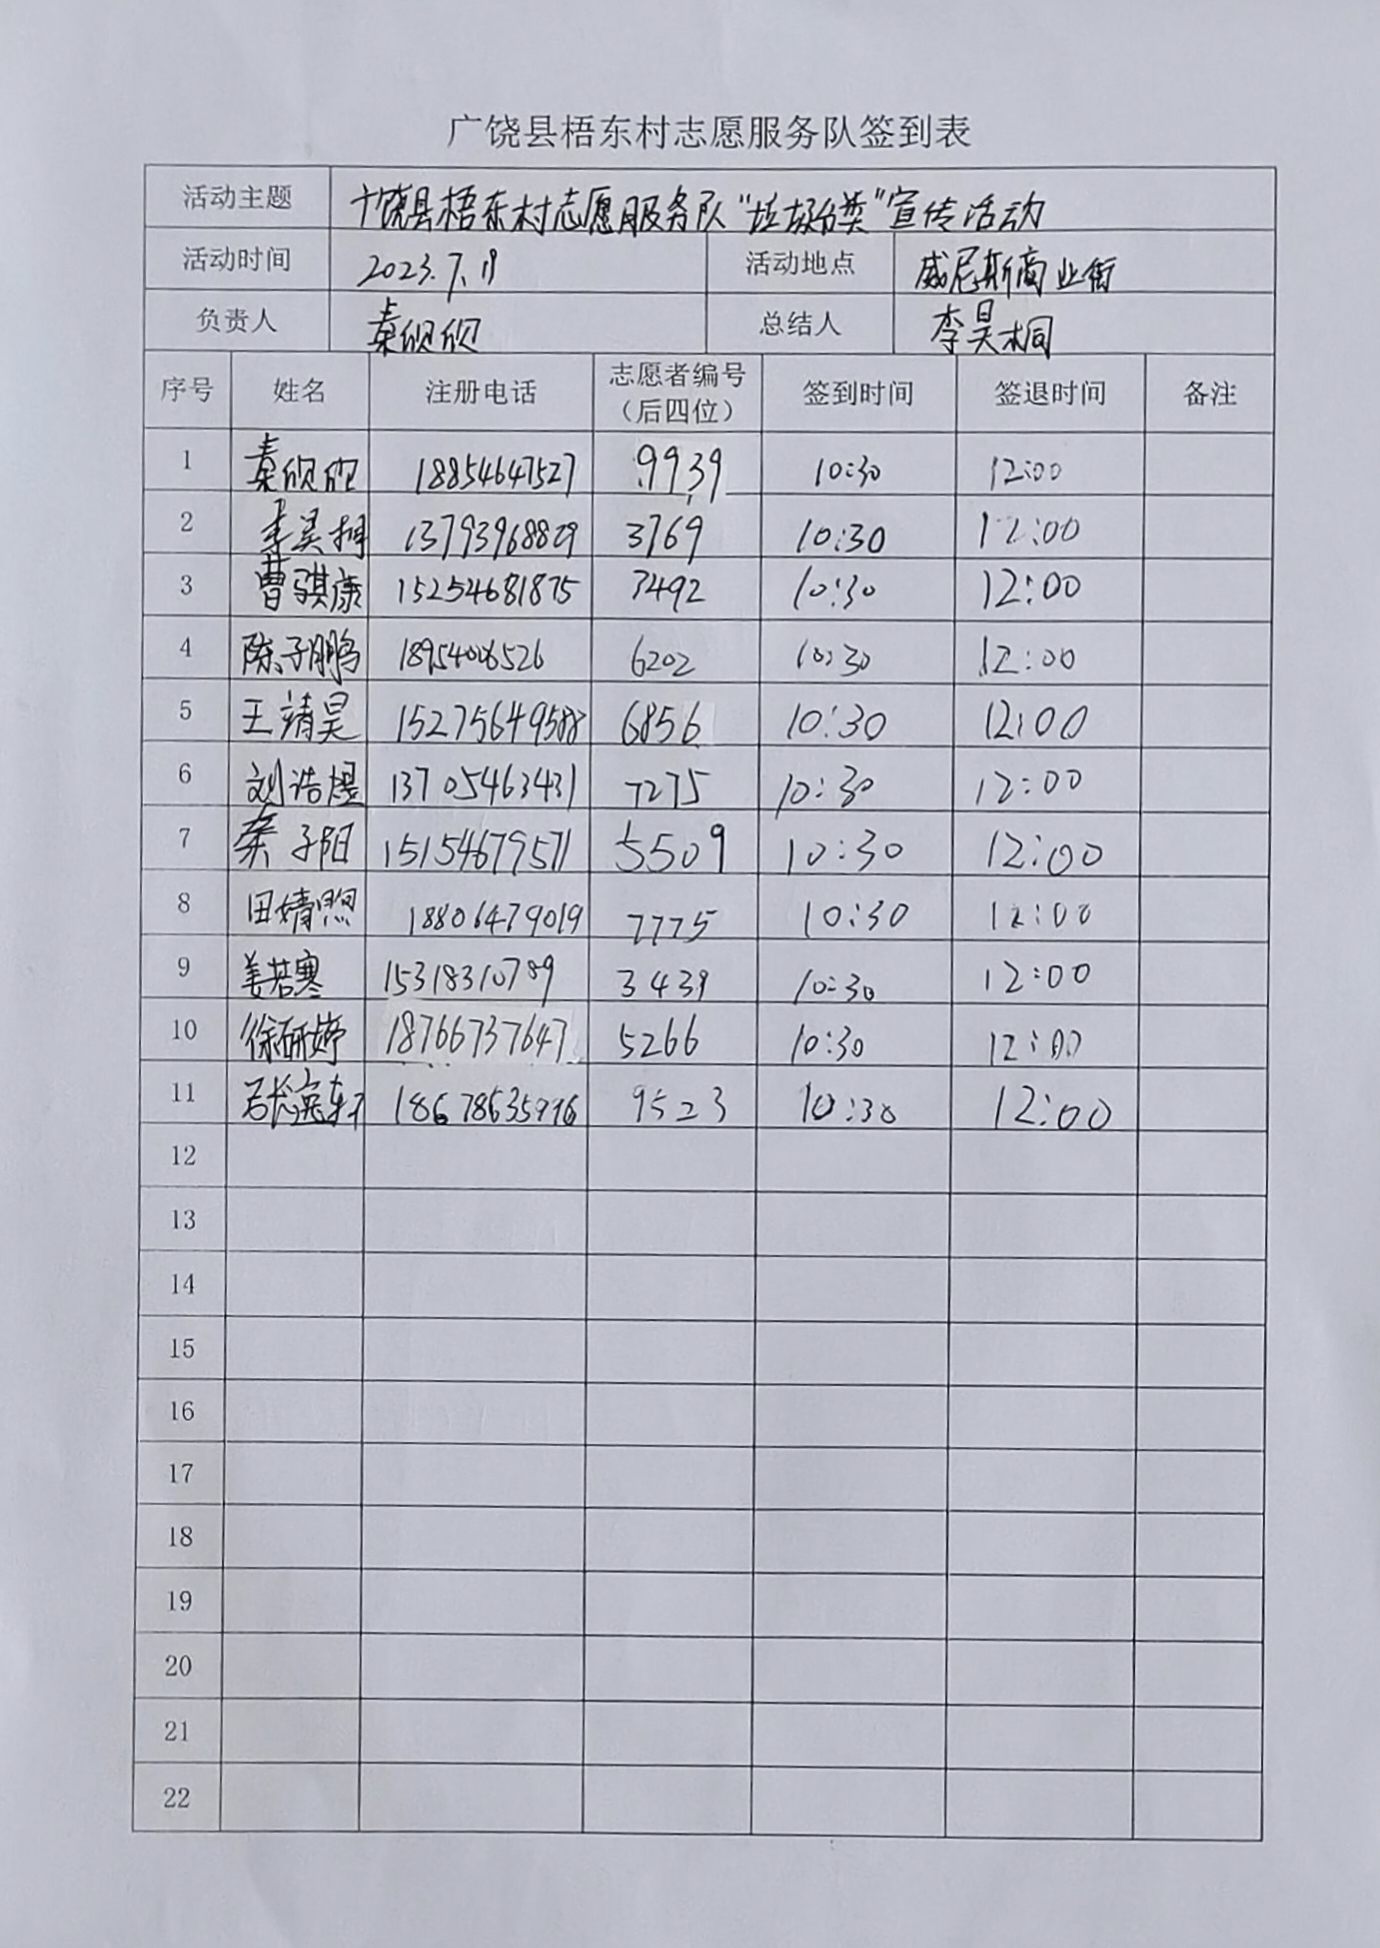 广饶县梧东村志愿服务队签到表
活动主题 广饶县梧东村志愿服务队“垃圾分类”宣传活动
活动时间 2023.7.19 活动地点 威尼斯商业街
负责人 秦欣欣 总结人 李昊桐
序号 姓名 注册电话 志愿者编号（后四位） 签到时间 签退时间 备注
1 秦欣欣 18854647527 9939 10:30 12:00
2 李昊桐 13793968829 3769 10:30 12:00
3 曹骐康 15254681875 7492 10:30 12:00
4 陈子鹏 18954006526 6202 10:30 12:00
5 王靖昊 15275649588 6856 10:30 12:00
6 刘浩煜 13705463431 7275 10:30 12:00
7 子阳 15154679571 5509 10:30 12:00
8 田婧煦 18806479019 7775 10:30 12:00
9 姜若寒 15318310789 3439 10:30 12:00
10 徐研婷 18766737647 5266 10:30 12:00
11 9523 10:30 12:00
12
13
14
15
16
17
18
19
20
21
22